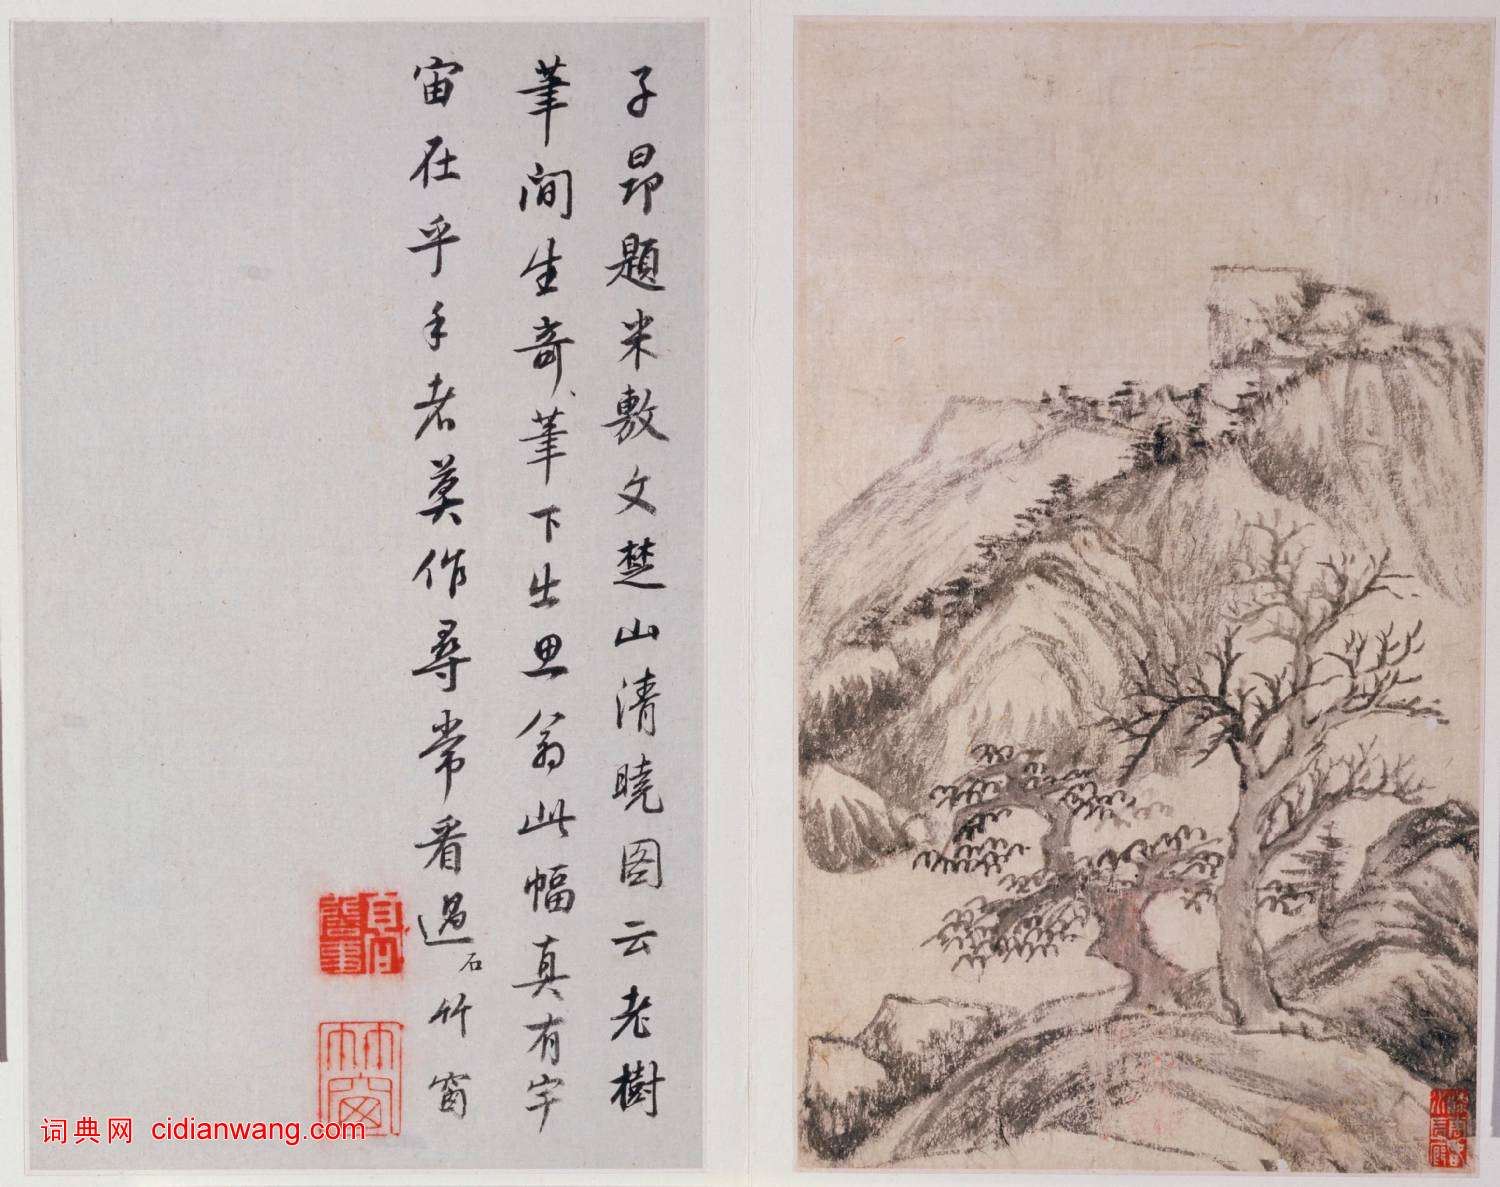 子昂題米敷文楚山清曉图云老樹
筆间生奇筆下出思翁此幅真有宇
宙在乎手者莫作尋常看過 石竹窗
竹窗
词典网 cidianwang.com